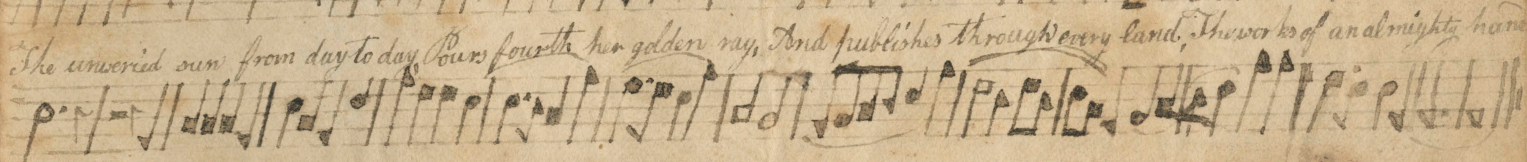 The unweried sun from day to day Pours fourth her golden ray, And publishes through every land, The works of an almighty hand